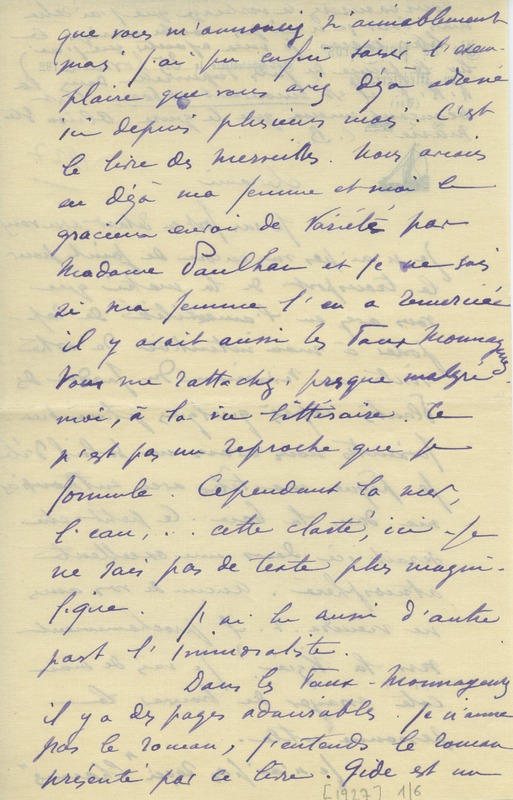 que vous m'annonciez si aimablement
mais j'ai pu enfin saisir l'exem-
plaire que vous avez déjà adressé
ici depuis plusieurs mois. C'est
le livre des merveilles. Nous avions
eu déjà ma femme et moi le
gracieux envoi de Variété par
Madame Paulhan et je ne sais
si ma femme l'en a remerciée
il y avait aussi les Faux Monnayeurs
Vous me rattachez, presque malgré
moi, à la vie littéraire. Ce
n'est pas un reproche que je
formule. Cependant la mer,
l'eau, ... cette clarté, ici - Je
ne sais pas de texte plus magni-
fique. J'ai lu aussi d'autre
part l'Immoraliste.
Dans les Faux-Monnayeurs
il y a des pages admirables. Je n'aime
pas le roman, j'entends le roman
présenté par ce livre. Gide est un
[1927] 1/6